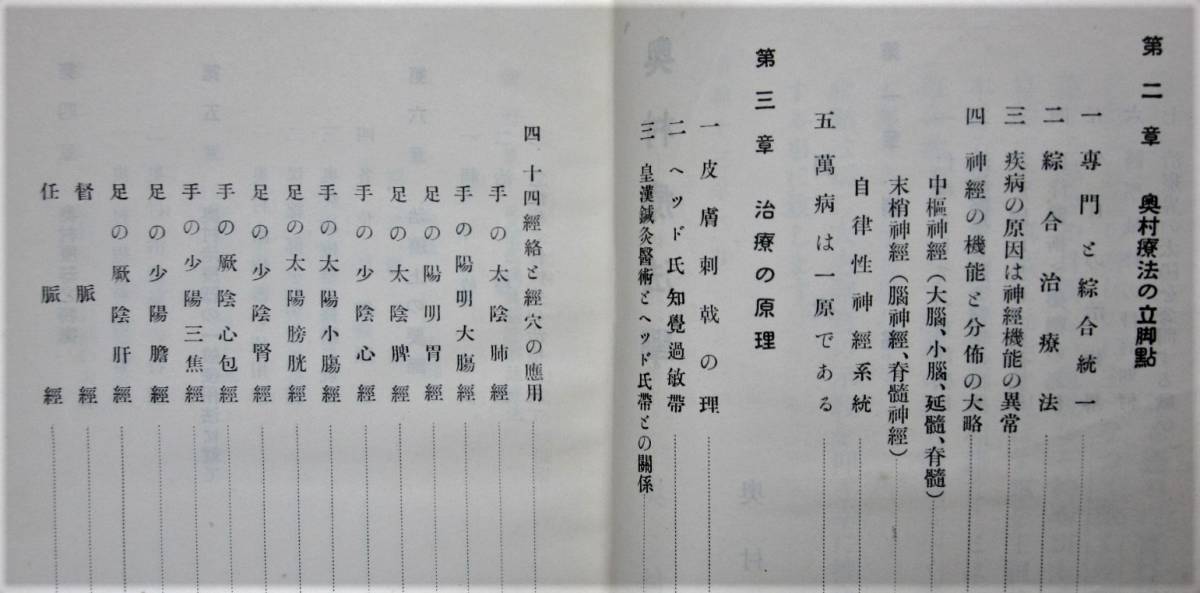 第二章　奥村療法の立脚點
一　專門と綜合統一
二　綜合治療法
三　疾病の原因は神經機能の異常
四　神經の機能と分佈の大略
中樞神經（大腦、小腦、延髓、脊髓）
末梢神經（腦神經、脊髓神經）
自律性神經系統
五　萬病は一原である
第三章　治療の原理
一　皮膚刺戟の理
二　ヘッド氏知覺過敏帶
三　皇漢鍼灸醫術とヘッド氏帶との關係
四、十四經絡と經穴の應用
手の太陰肺經
手の陽明大腸經
足の陽明胃經
足の太陰脾經
手の少陰心經
手の太陽小腸經
足の太陽膀胱經
足の少陰腎經
手の厥陰心包經
手の少陽三焦經
足の少陽膽經
足の厥陰肝經
督脈經
任脈經